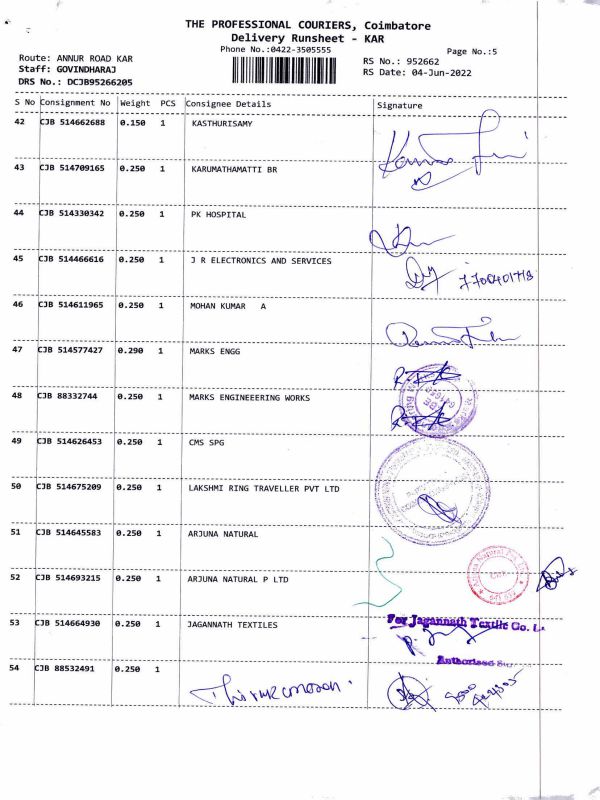 THE PROFESSIONAL COURIERS, Coimbatore
Delivery Runsheet - KAR
Phone No.:0422-3505555
Page No.:5
Route: ANNUR ROAD KAR
RS No.: 952662
Staff: GOVINDHARAJ
RS Date: 04-Jun-2022
DRS No.: DCJB95266205
S No Consignment No Weight PCS Consignee Details Signature
42 CJB 514662688 0.150 1 KASTHURISAMY
43 CJB 514709165 0.250 1 KARUMATHAMATTI BR
44 CJB 514330342 0.250 1 PK HOSPITAL
45 CJB 514466616 0.250 1 J R ELECTRONICS AND SERVICES
46 CJB 514611965 0.250 1 MOHAN KUMAR A
47 CJB 514577427 0.290 1 MARKS ENGG
48 CJB 88332744 0.250 1 MARKS ENGINEEERING WORKS
49 CJB 514626453 0.250 1 CMS SPG
50 CJB 514675209 0.250 1 LAKSHMI RING TRAVELLER PVT LTD
51 CJB 514645583 0.250 1 ARJUNA NATURAL
52 CJB 514693215 0.250 1 ARJUNA NATURAL P LTD
53 CJB 514664930 0.250 1 JAGANNATH TEXTILES
For Jagannath Textile Co. L
Authorised
54 CJB 88532491 0.250 1